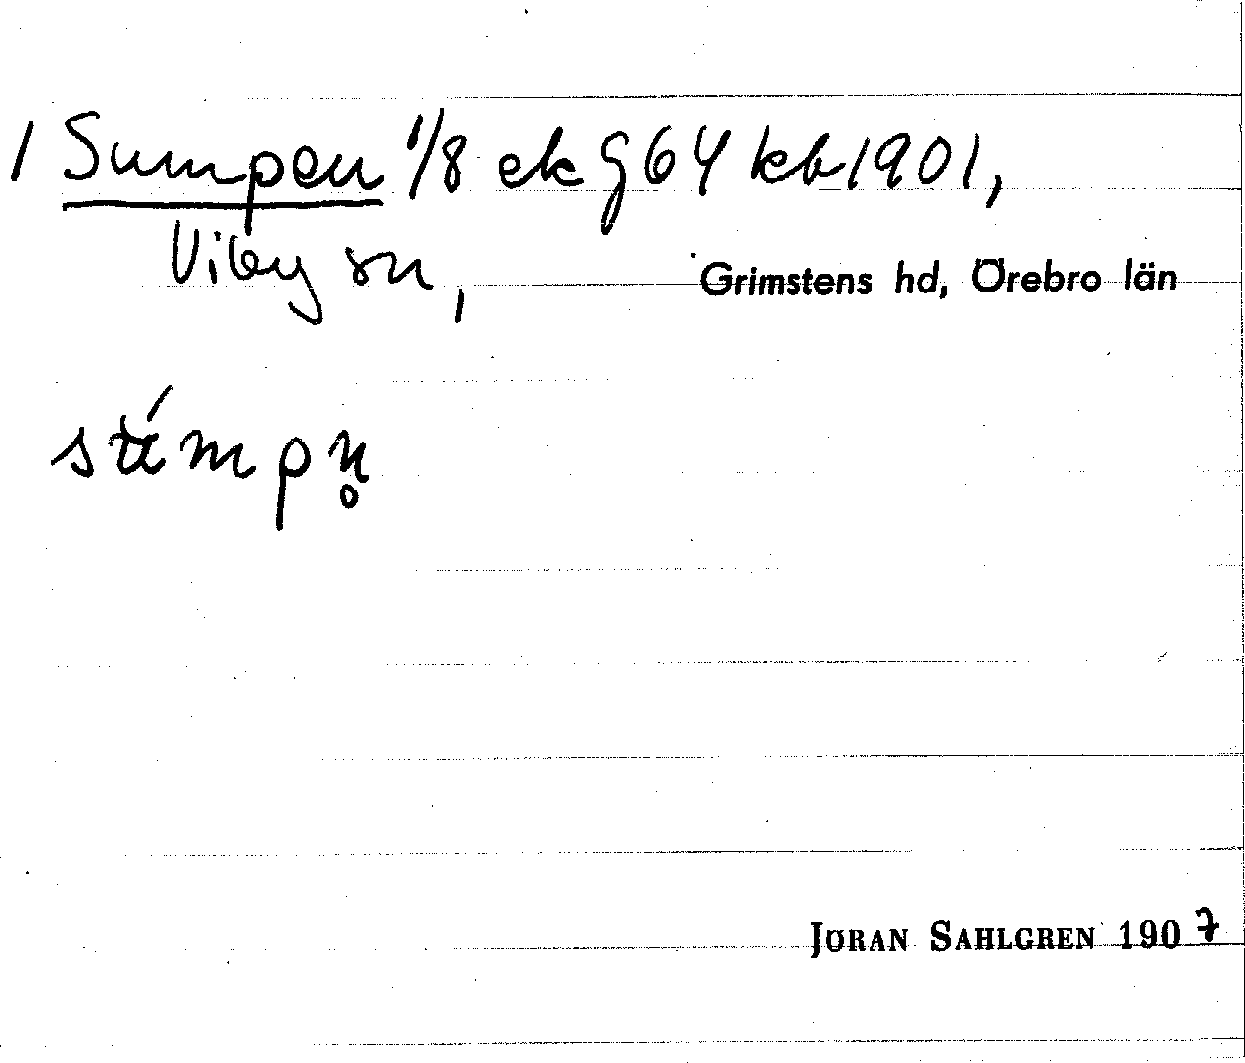 1 Sumpen 1/8 ek G 64 kb 1901,
Viby sn, Grimstens hd, Örebro län
JÖRAN SAHLGREN 1907